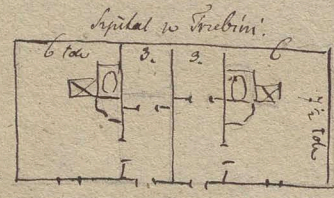 Szpital w Trzebini.
6 łok 3. 3. 6
7½ łok